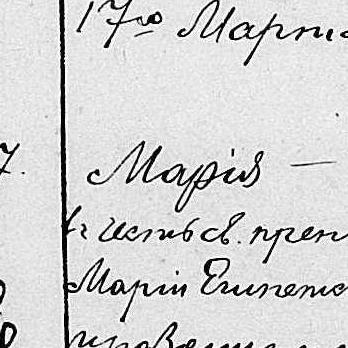 17го Марта
7.
Марія —
въ честь св. преп
Маріи Египетс